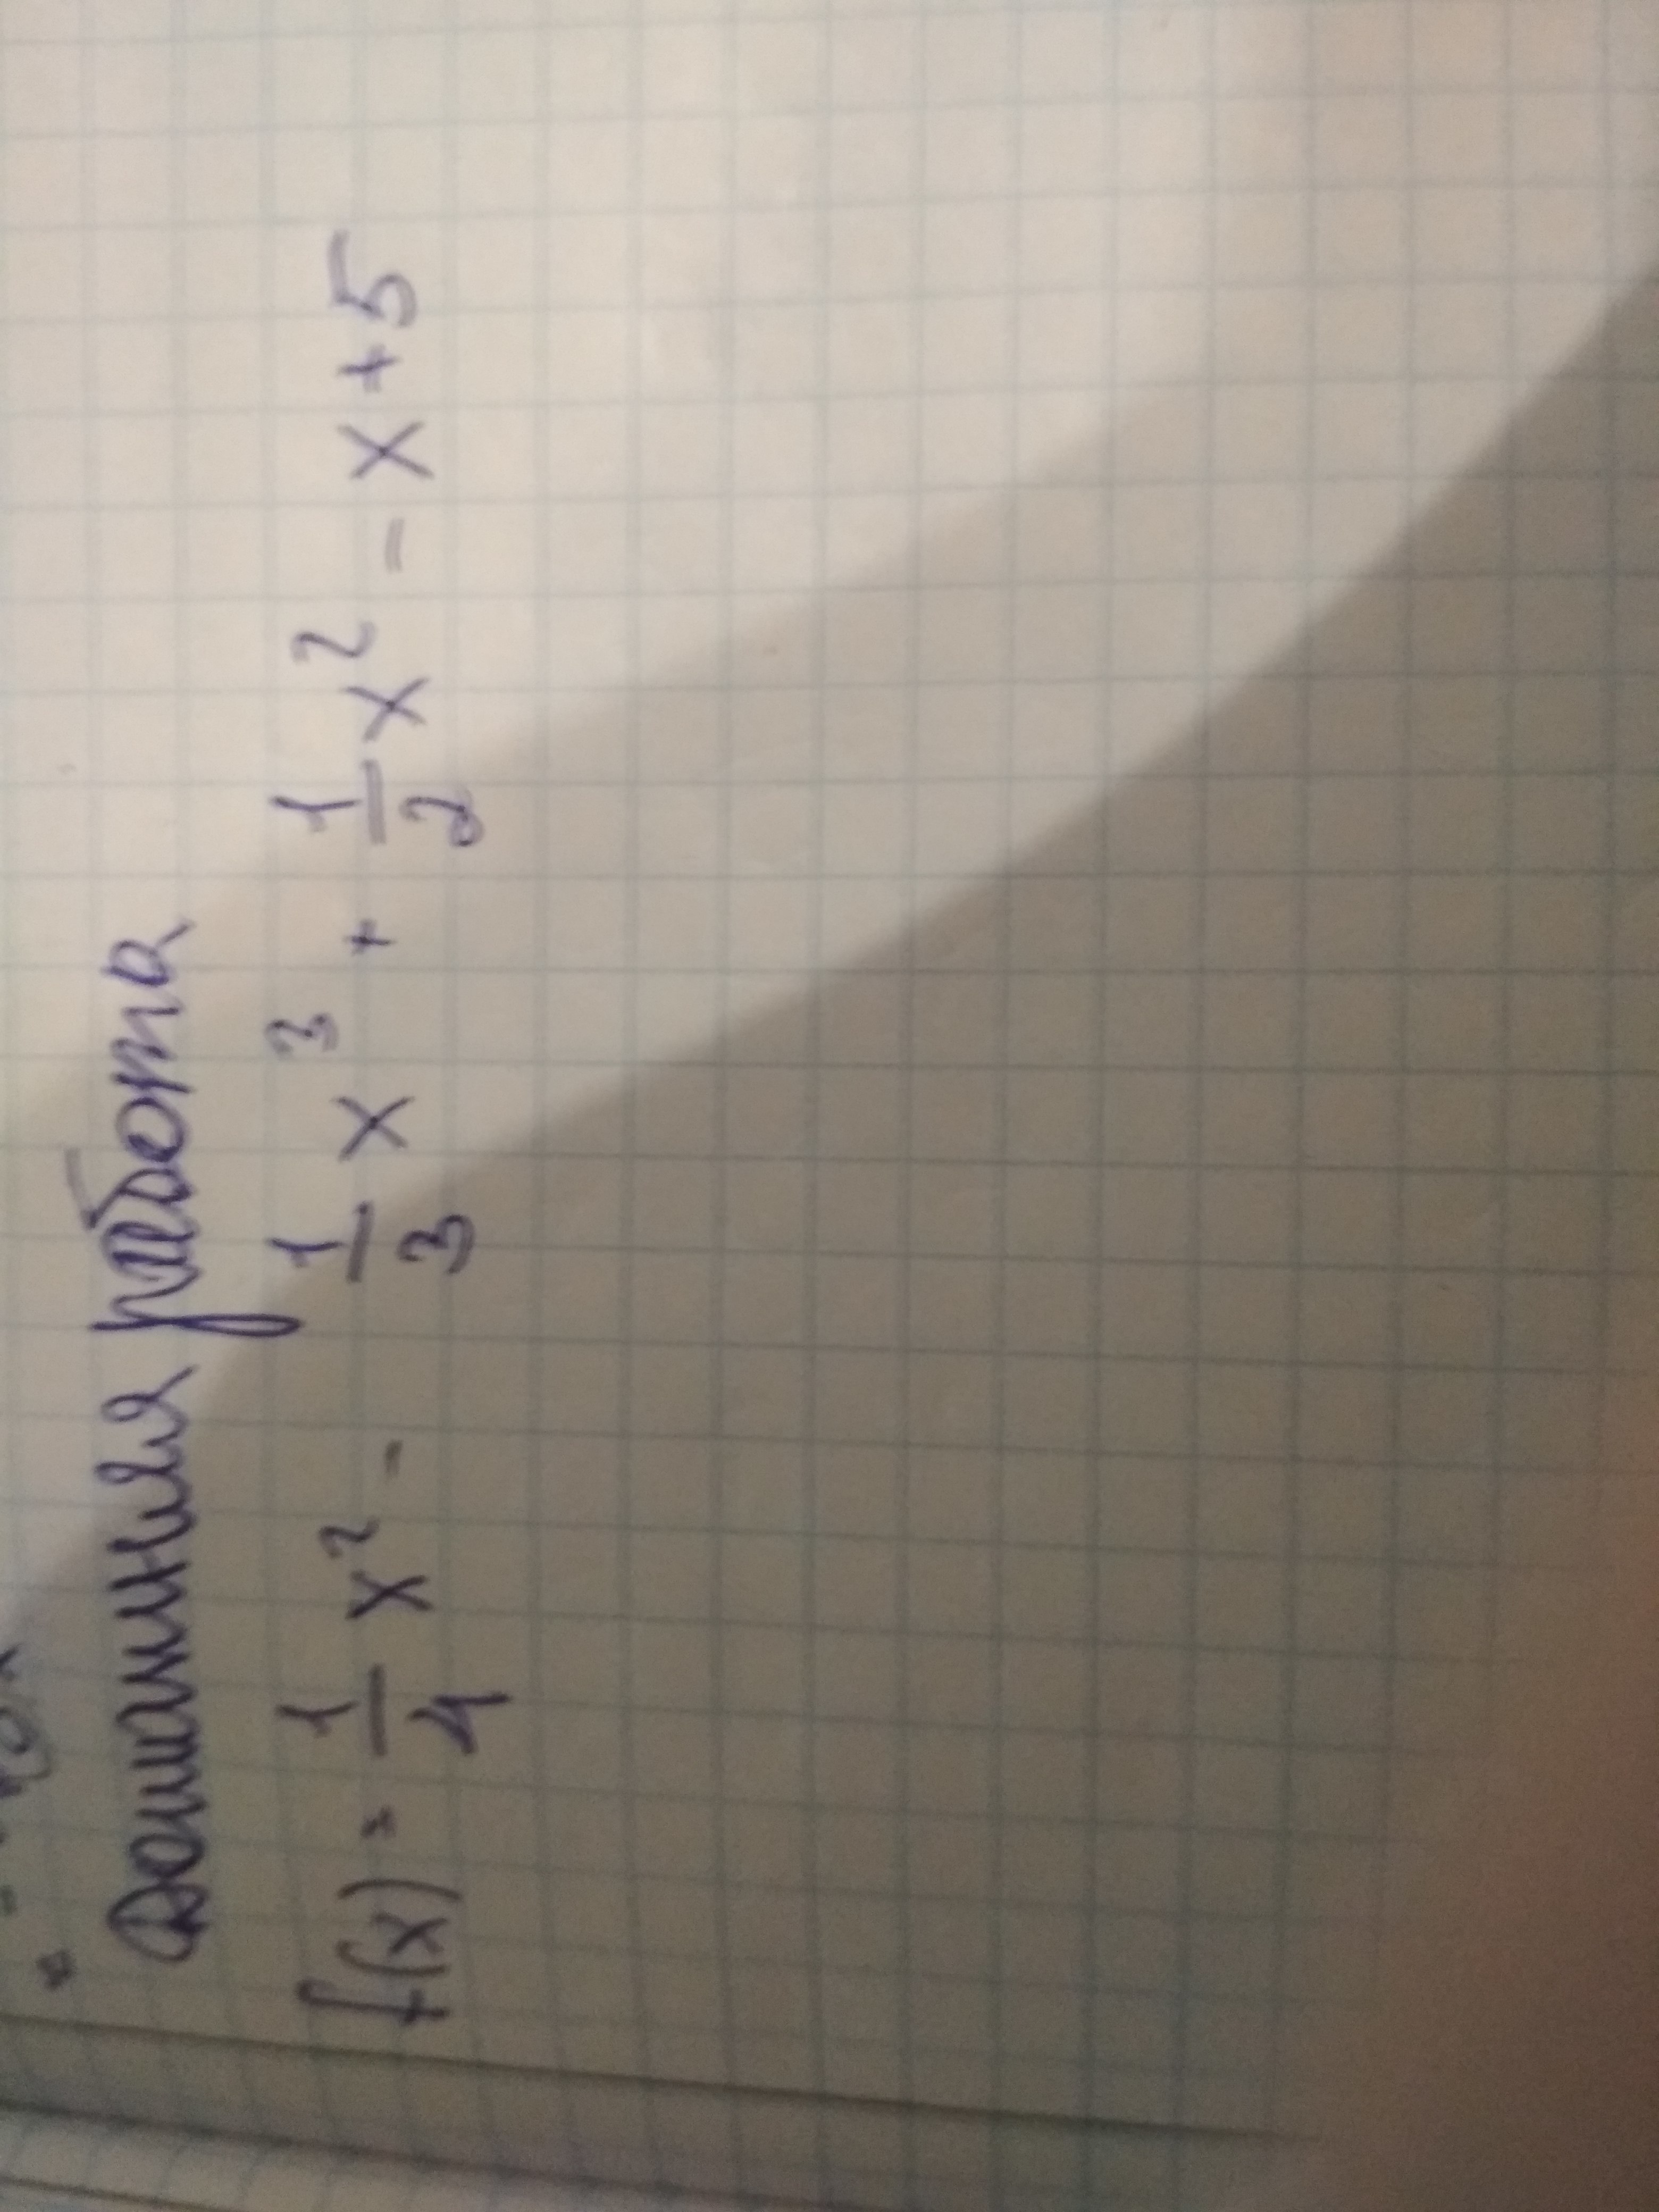 Домашняя работа
f(x) = 1/4 x² - 1/3 x³ + 1/2 x² - x + 5